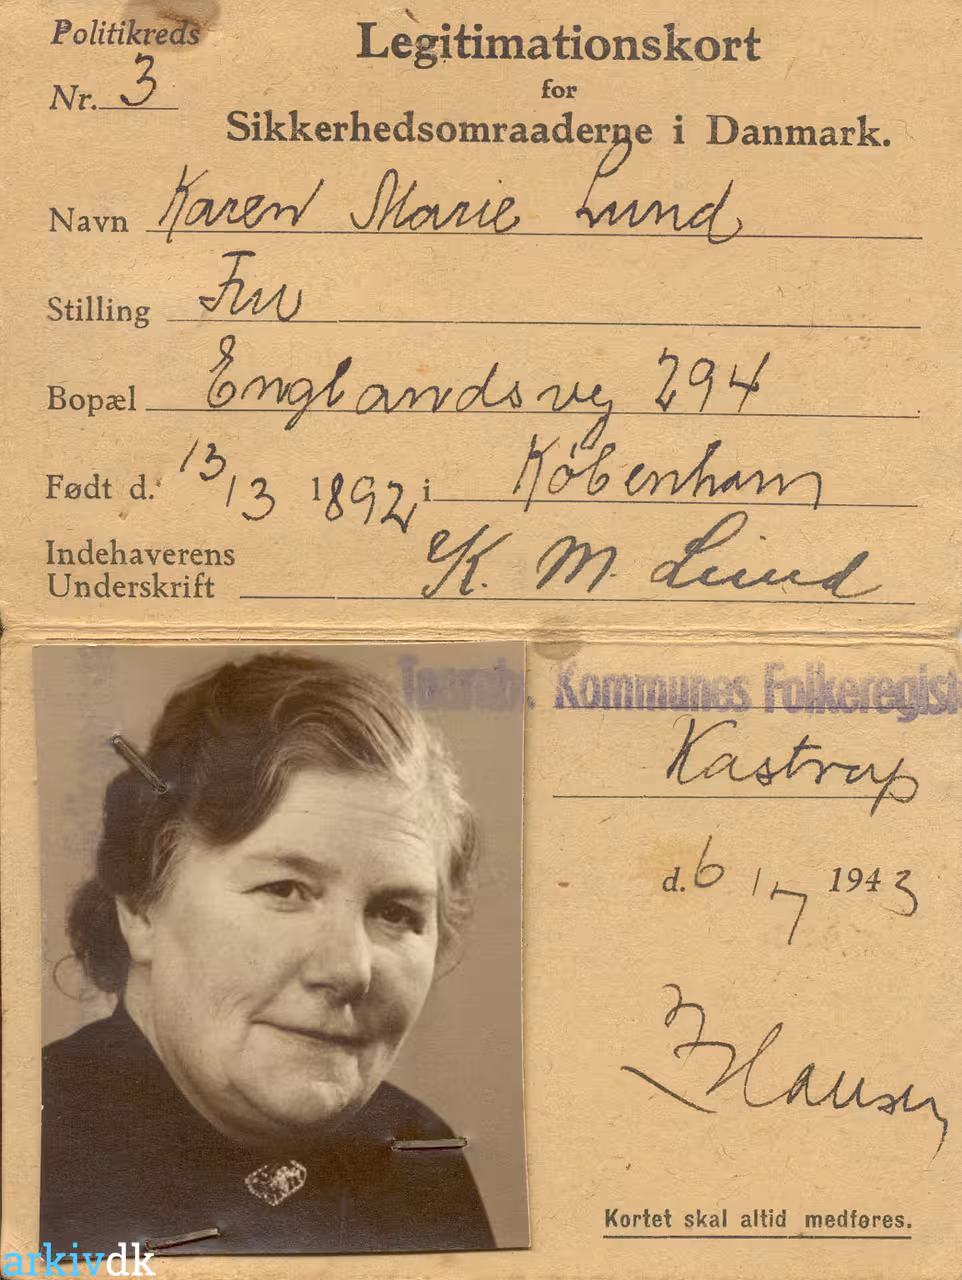 Politikreds
Nr. 3
Legitimationskort
for
Sikkerhedsomraaderne i Danmark.
Navn Karen Marie Lund
Stilling Fru
Bopæl Englandsvej 294
Født d. 13/13 1892 i København
Indehaverens
Underskrift K. M. Lund
Kommunes Folkeregist
Kastrup
d. 6/7 1943
Hansen
Kortet skal altid medføres.
arkivdk